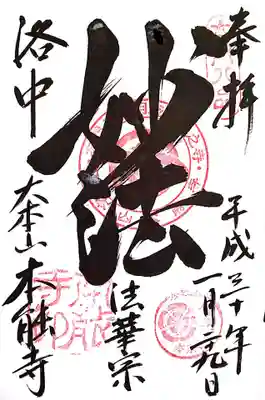 奉拝
平成三十年
一月二九日
妙法
法華宗
洛中
大本山本能寺